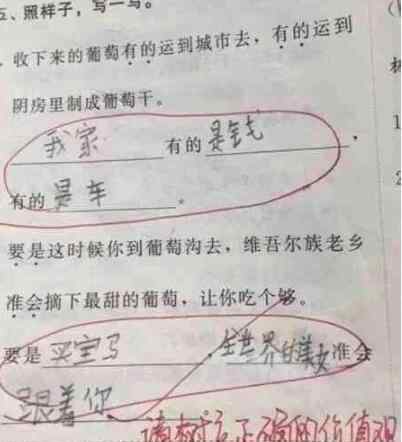 五、照样子，写一写。
收下来的葡萄有的运到城市去，有的运到
阴房里制成葡萄干。
我家有的是钱，
有的是车。
要是这时候你到葡萄沟去，维吾尔族老乡
准会摘下最甜的葡萄，让你吃个够。
要是买宝马，全世界的美女准会
跟着你
请树立正确的价值观